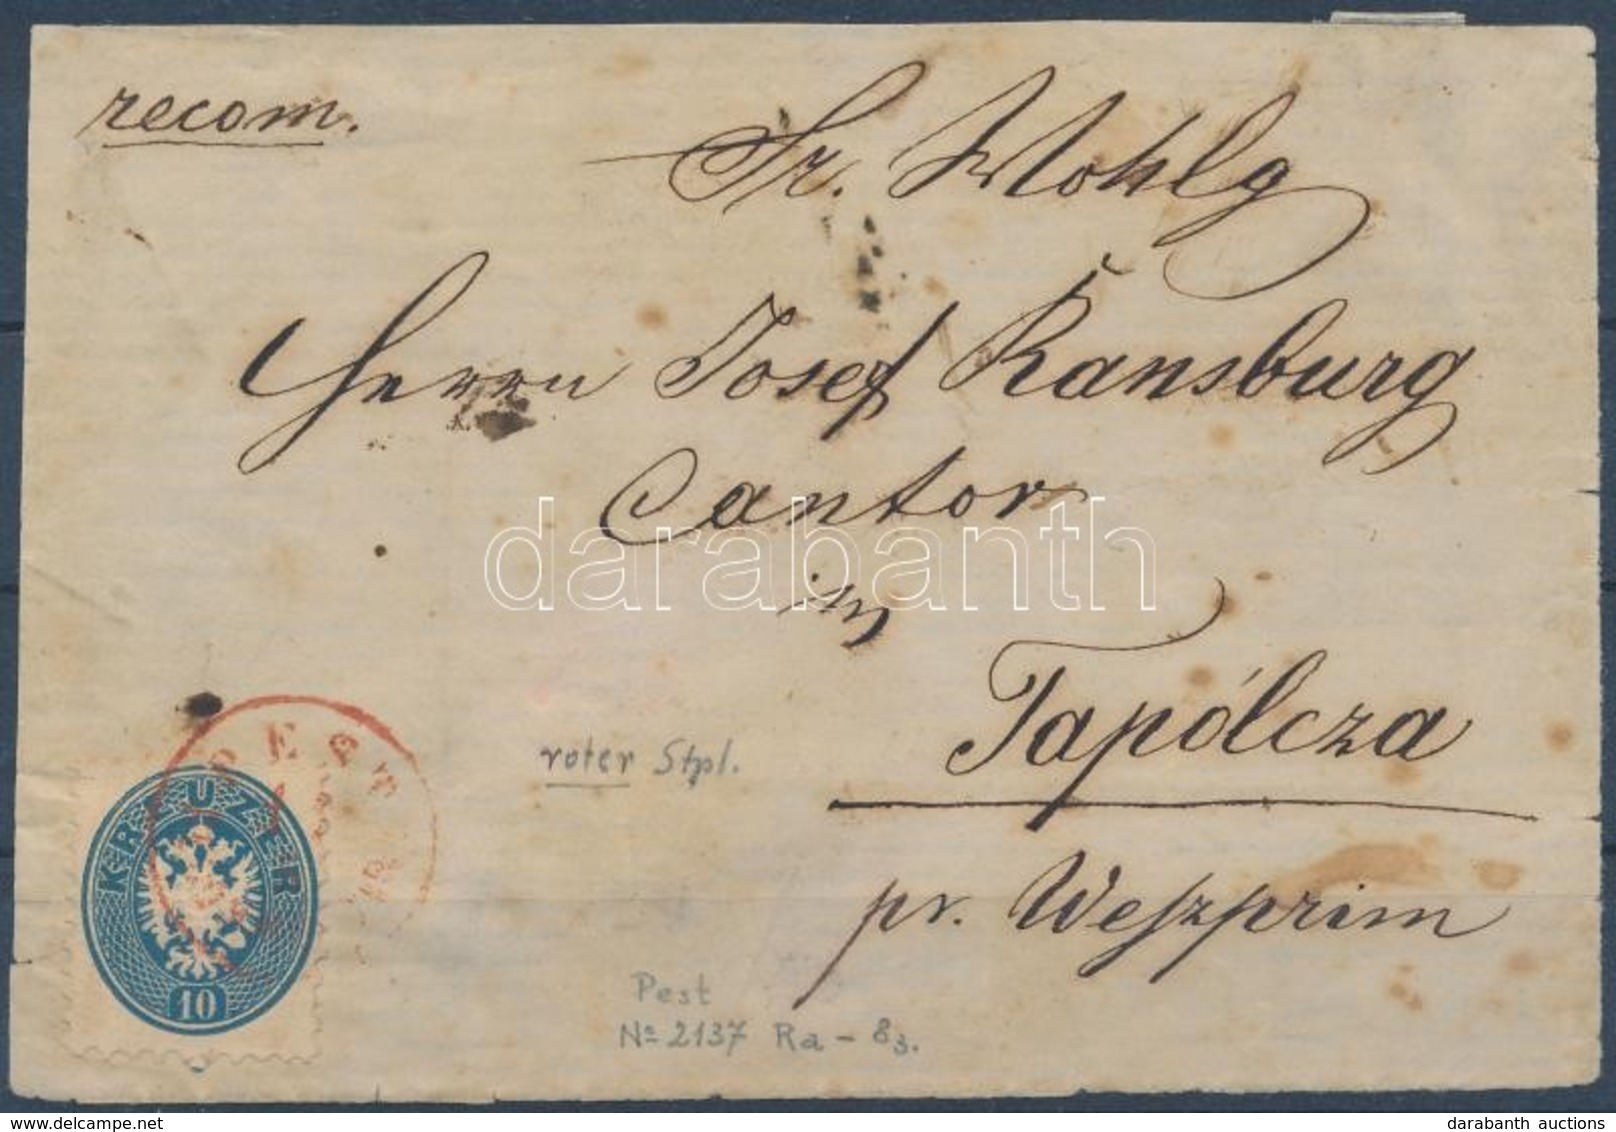 recom.
Sr. Wohlg
Herrn Josef Ransburg
Cantor
in
Tapólcza
pr. Weszprim
roter Stpl.
PEST
KREUZER
10
Pest
No 2137 Ra - 83.
darabanth
darabanth auctions